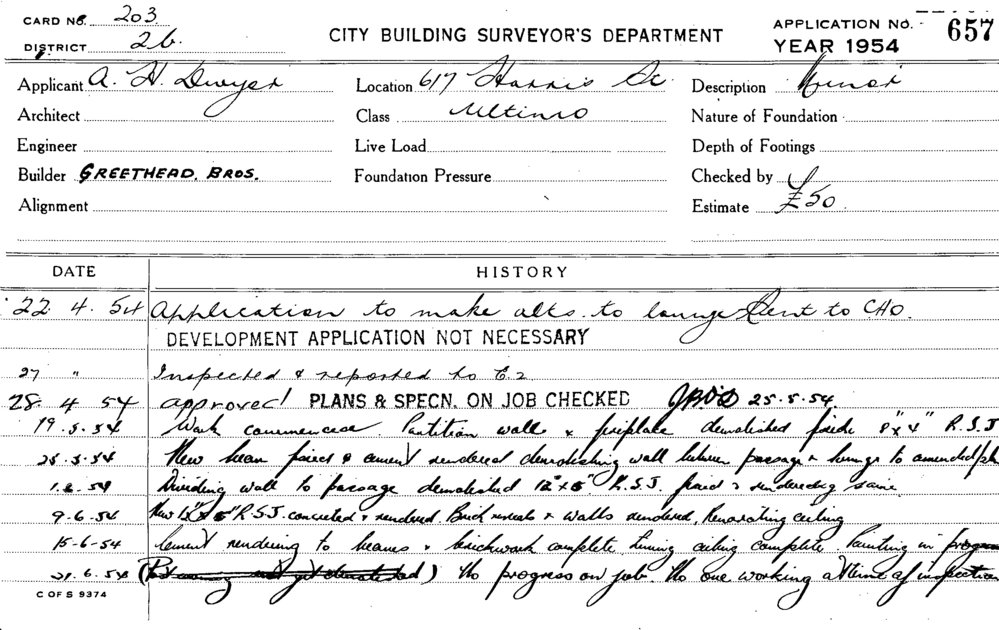 CARD NO. 203
DISTRICT 26
CITY BUILDING SURVEYOR'S DEPARTMENT
APPLICATION NO. 657
YEAR 1954
Applicant A. H. Dwyer Location 617 Harris St. Description Minor
Architect Class Ultimo Nature of Foundation
Engineer Live Load Depth of Footings
Builder GREETHEAD. BROS. Foundation Pressure Checked by
Alignment Estimate £50
DATE HISTORY
22. 4. 54 Application to make alts. to lounge Sent to CHO.
DEVELOPMENT APPLICATION NOT NECESSARY
27 " Inspected & reported to C.2
28. 4 54 approved PLANS & SPECN. ON JOB CHECKED 25.5.54
19.5.54 Work commenced. Partition wall & fireplace demolished 8" x 4" R.S.J
25.5.54 New beam fixed & cement rendered demolishing wall between passage & lounge to amended
1.6.54 Dividing wall to passage demolished 12" x 5" R.S.J. fixed & rendering same
9.6.54 New 12" x 5" R.S.J. concreted & rendered. Brick reveals & walls rendered, Renovating ceiling
15-6-54 Cement rendering to beams & brickwork complete. ceiling complete. Painting in progress
21.6.54 ( ) No progress on job. No one working at time of inspection
C OF S 9374